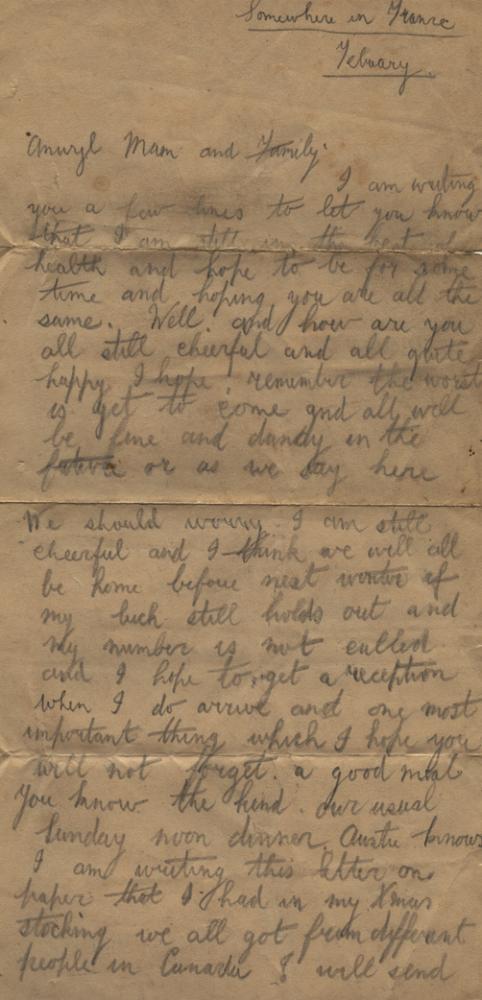 Somewhere in France
Febuary.
Anwyl Mam and Family.
I am writing
you a few lines to let you know
that I am still in the best of
health and hope to be for some
time and hoping you are all the
same. Well. and how are you
all still cheerful and all quite
happy I hope. remember the worst
is yet to come and all well
be fine and dandy in the
future or as we say here
We should worry. I am still
cheerful and I think we will all
be home before next winter if
my luck still holds out and
my number is not called
and I hope to get a reception
when I do arrive and one most
important thing which I hope you
will not forget. a good meal
You know the kind. our usual
Sunday noon dinner. Auntie knows
I am writing this letter on
paper that I had in my Xmas
stocking we all got from different
people in Canada I will send